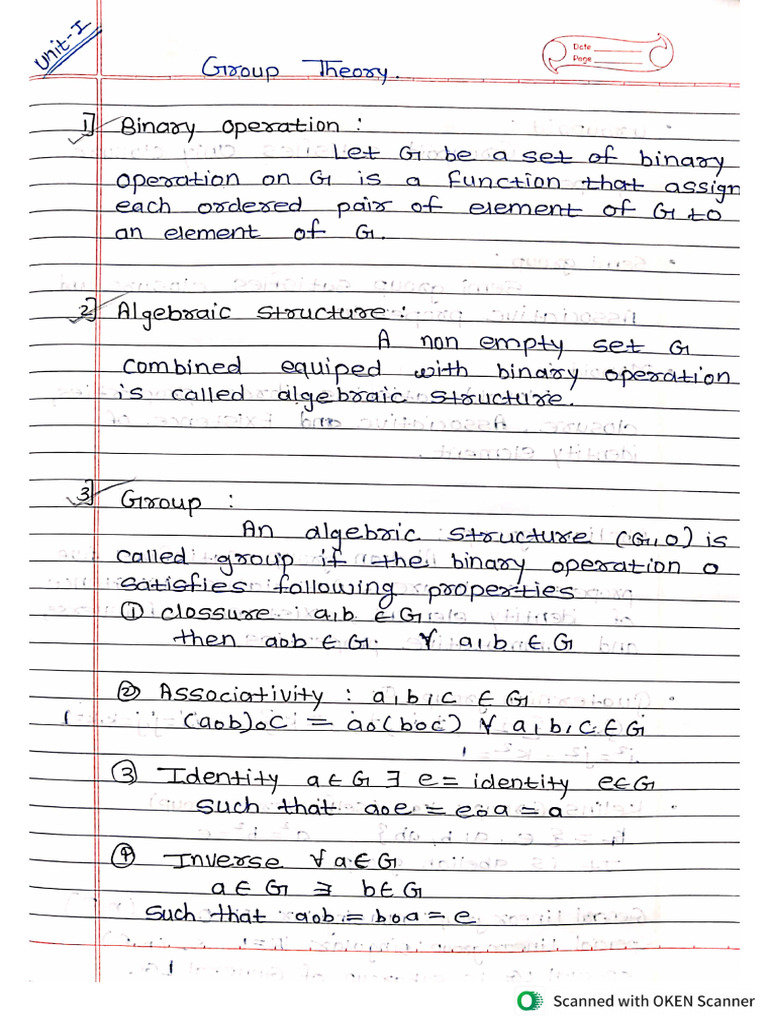 Unit-I
Date
Page
Group Theory.
1] Binary operation :
Let G be a set of binary
operation on G is a function that assign
each ordered pair of element of G to
an element of G.
2] Algebraic structure :
A non empty set G
combined equiped with binary operation
is called algebraic structure.
3] Group :
An algebric structure (G, o) is
called group if the binary operation o
satisfies following properties
① clossure : a, b ∈ G
then aob ∈ G. ∀ a, b ∈ G
② Associativity : a, b, c ∈ G
(aob)oc = ao(boc) ∀ a, b, c ∈ G
③ Identity a ∈ G ∃ e = identity e ∈ G
such that aoe = eoa = a
④ Inverse ∀ a ∈ G
a ∈ G ∃ b ∈ G
such that aob = boa = e
Scanned with OKEN Scanner